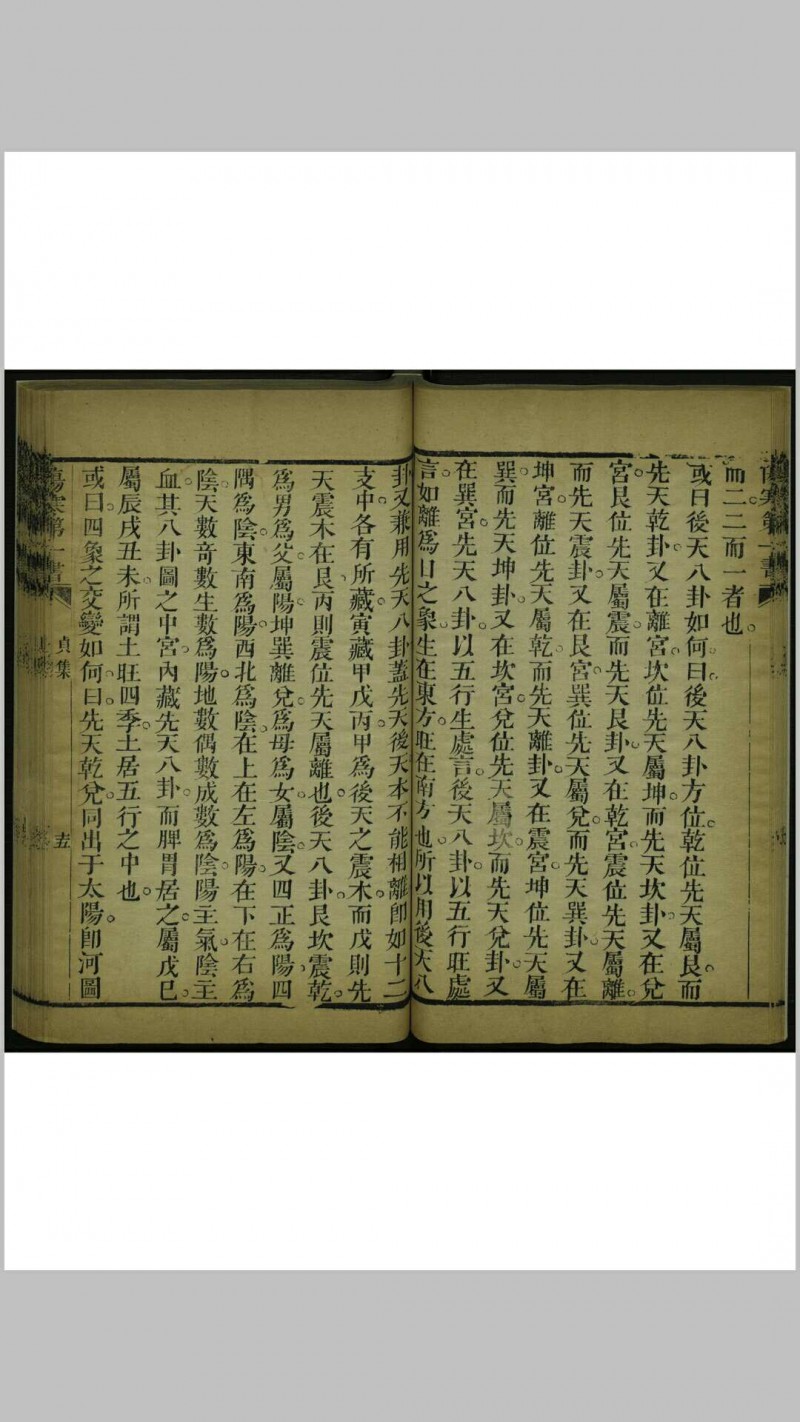 而二二而一者也
或曰後天八卦如何曰後天八卦方位乾位先天屬艮而
先天乾卦又在離宮坎位先天屬坤而先天坎卦又在兌
宮艮位先天屬震而先天艮卦又在乾宮震位先天屬離
而先天震卦又在艮宮巽位先天屬兌而先天巽卦又在
坤宮離位先天屬乾而先天離卦又在震宮坤位先天屬
巽而先天坤卦又在坎宮兌位先天屬坎而先天兌卦又
在巽宮先天八卦以五行生處言後天八卦以五行旺處
言如離為日之象生在東方旺在南方也所以用後天八
卦又兼用先天八卦蓋先天後天本不能相離即如十二
支中各有所藏寅藏甲戊丙甲為後天之震木而戊則先
天震木在艮丙則震位先天屬離也後天八卦艮坎震乾
為男為父屬陽坤巽離兌為母為女屬陰又四正為陽四
隅為陰東南為陽西北為陰在上在左為陽在下在右為
陰天數奇數生數為陽地數偶數成數為陰陽主氣陰主
血其八卦圖之中宮內藏先天八卦而脾胃居之屬戊巳
屬辰戌丑未所謂土旺四季土居五行之中也
或曰四象之交變如何曰先天乾兌同出于太陽即河圖
傷寒第一書
貞集